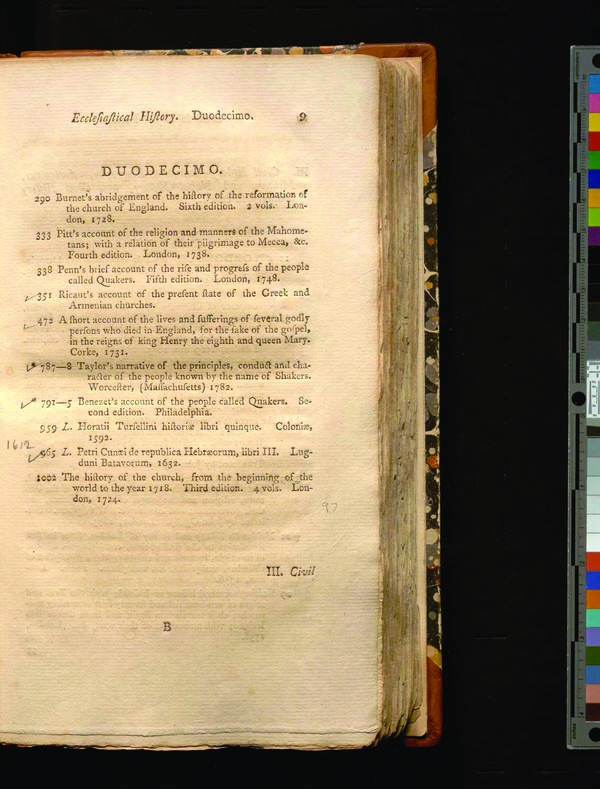 Eccleſiaſtical Hiſtory. Duodecimo. 9
DUODECIMO.
290 Burnet's abridgement of the hiſtory of the reformation of
the church of England. Sixth edition. 2 vols. Lon-
don, 1728.
333 Pitt's account of the religion and manners of the Mahome-
tans; with a relation of their pilgrimage to Mecca, &c.
Fourth edition. London, 1738.
338 Penn's brief account of the riſe and progreſs of the people
called Quakers. Fifth edition. London, 1748.
351 Ricaut's account of the preſent ſtate of the Greek and
Armenian churches.
472 A ſhort account of the lives and ſufferings of ſeveral godly
perſons who died in England, for the ſake of the goſpel,
in the reigns of king Henry the eighth and queen Mary.
Corke, 1731.
787—8 Taylor's narrative of the principles, conduct and cha-
racter of the people known by the name of Shakers.
Worceſter, (Maſſachuſetts) 1782.
791—5 Benezet's account of the people called Quakers. Se-
cond edition. Philadelphia.
959 L. Horatii Turſellini hiſtoriæ libri quinque. Coloniæ,
1592.
1612
965 L. Petri Cunæi de republica Hebræorum, libri III. Lug-
duni Batavorum, 1632.
1002 The hiſtory of the church, from the beginning of the
world to the year 1718. Third edition. 4 vols. Lon-
don, 1724.
97
III. Civil
B